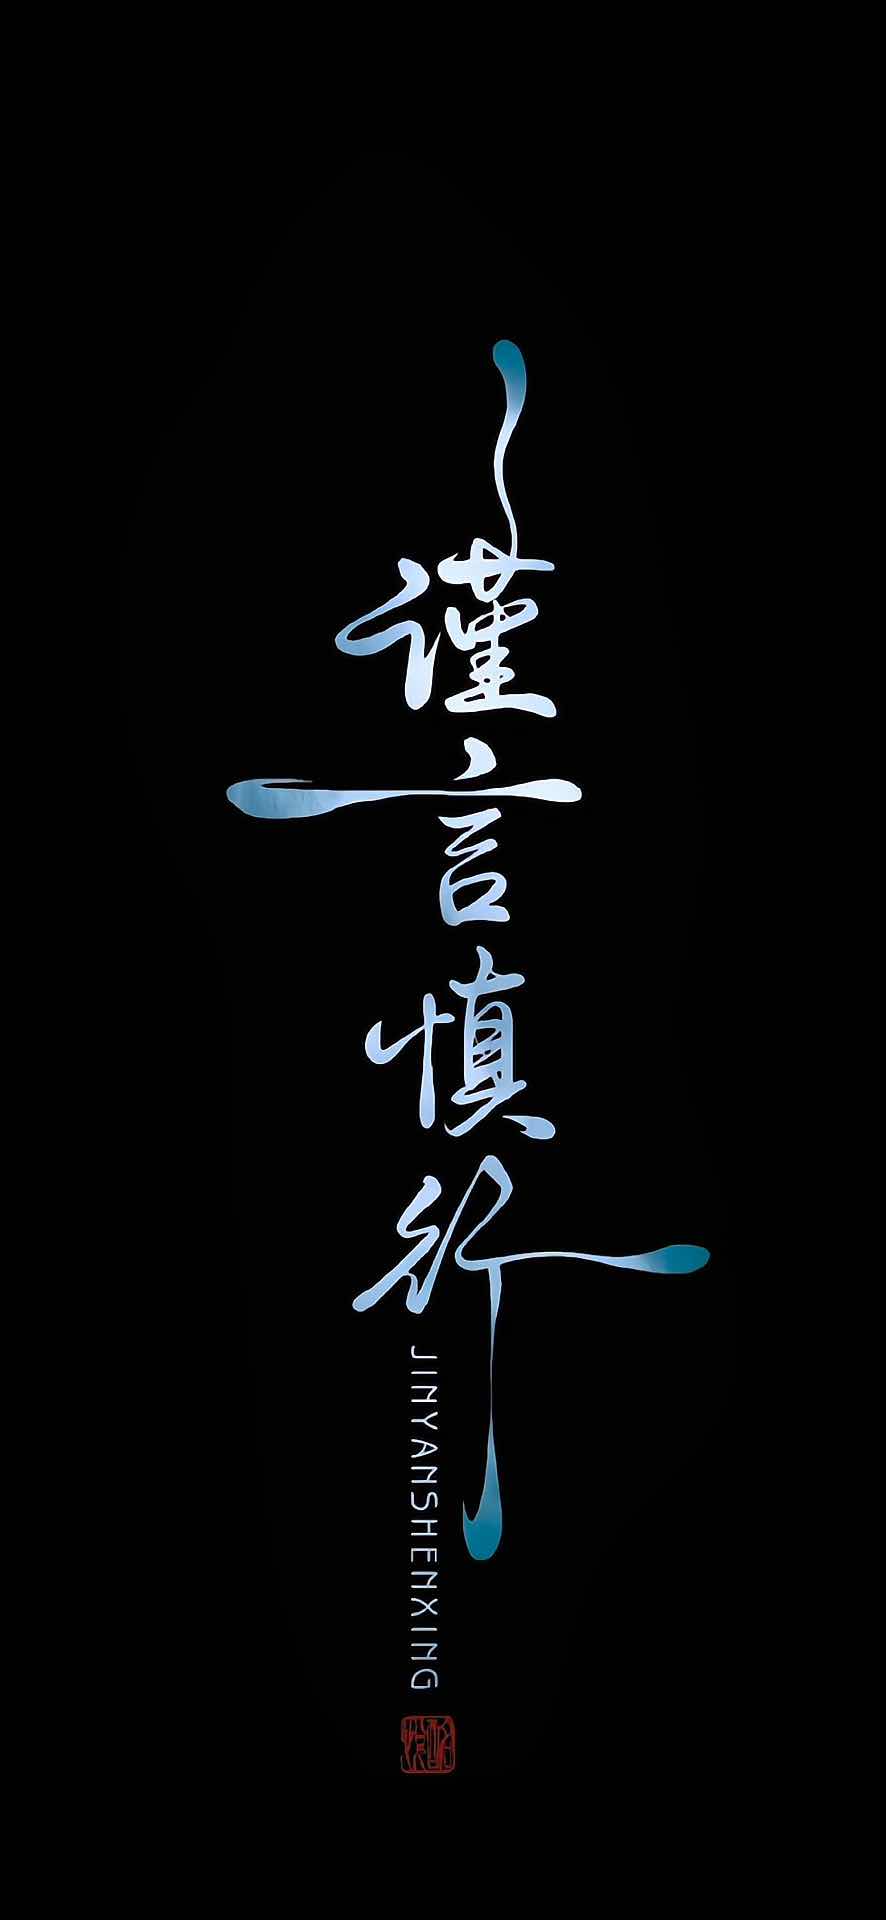 谨言慎行
JINYANSHENXING